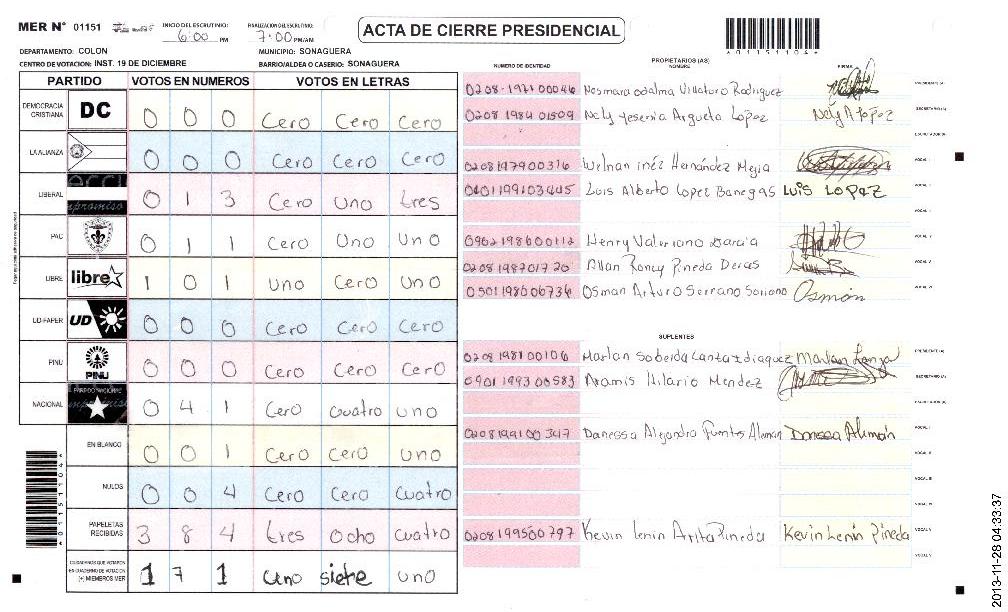 MER Nº 01151 INICIO DEL ESCRUTINIO: 6:00 PM FINALIZACIÓN DEL ESCRUTINIO: 7:00 PM/AM ACTA DE CIERRE PRESIDENCIAL
*01151104*
DEPARTAMENTO: COLON MUNICIPIO: SONAGUERA
CENTRO DE VOTACION: INST. 19 DE DICIEMBRE BARRIO/ALDEA O CASERIO: SONAGUERA
PARTIDO VOTOS EN NUMEROS VOTOS EN LETRAS
DEMOCRACIA CRISTIANA DC 0 0 0 Cero Cero Cero
LA ALIANZA 0 0 0 Cero Cero Cero
LIBERAL 0 1 3 Cero Uno tres
PAC 0 1 1 Cero Uno Uno
LIBRE libre 1 0 1 Uno Cero Uno
UD-FAPER UD 0 0 0 Cero Cero Cero
PINU PINU 0 0 0 Cero Cero Cero
NACIONAL 0 4 1 Cero cuatro uno
EN BLANCO 0 0 1 Cero Cero uno
NULOS 0 0 4 Cero Cero cuatro
PAPELETAS RECIBIDAS 3 8 4 tres Ocho cuatro
CIUDADANOS QUE VOTARON EN CUADERNO DE VOTACION (+) MIEMBROS MER 1 7 1 uno siete uno
NUMERO DE IDENTIDAD PROPIETARIOS (AS) NOMBRE FIRMA
0208-1971 00046 Nesmara odalma Villatoro Rodriguez PRESIDENTE (A)
0208 1984 01509 Nely yesenia Argueta López Nely A López SECRETARIO (A)
ESCRUTADOR (A)
0208197900316 Welnan inéz Hernández Mejia VOCAL I
0401199103445 Luis Alberto Lopez Banegas LUIS LOPEZ VOCAL II
0902198600112 Henry Valeriano Garcia VOCAL IV
0208198701720 Allan Roney Pineda Deras VOCAL V
0501198006734 Osman Arturo Serrano Soriano Osmán VOCAL VI
SUPLENTES
0208198100106 Marlan Sobeida Lanza Marlan Lanza PRESIDENTE (A)
0901 1993 00583 Aramis Hilario Mendez SECRETARIO (A)
ESCRUTADOR (A)
0208199100347 Danessa Alejandra Fuentes Aleman Danessa Alemán VOCAL I
VOCAL II
VOCAL III
VOCAL IV
0208199500797 Kevin Lenin Arita Pineda Kevin Lenin Pineda VOCAL V
2013-11-28 04:33:37